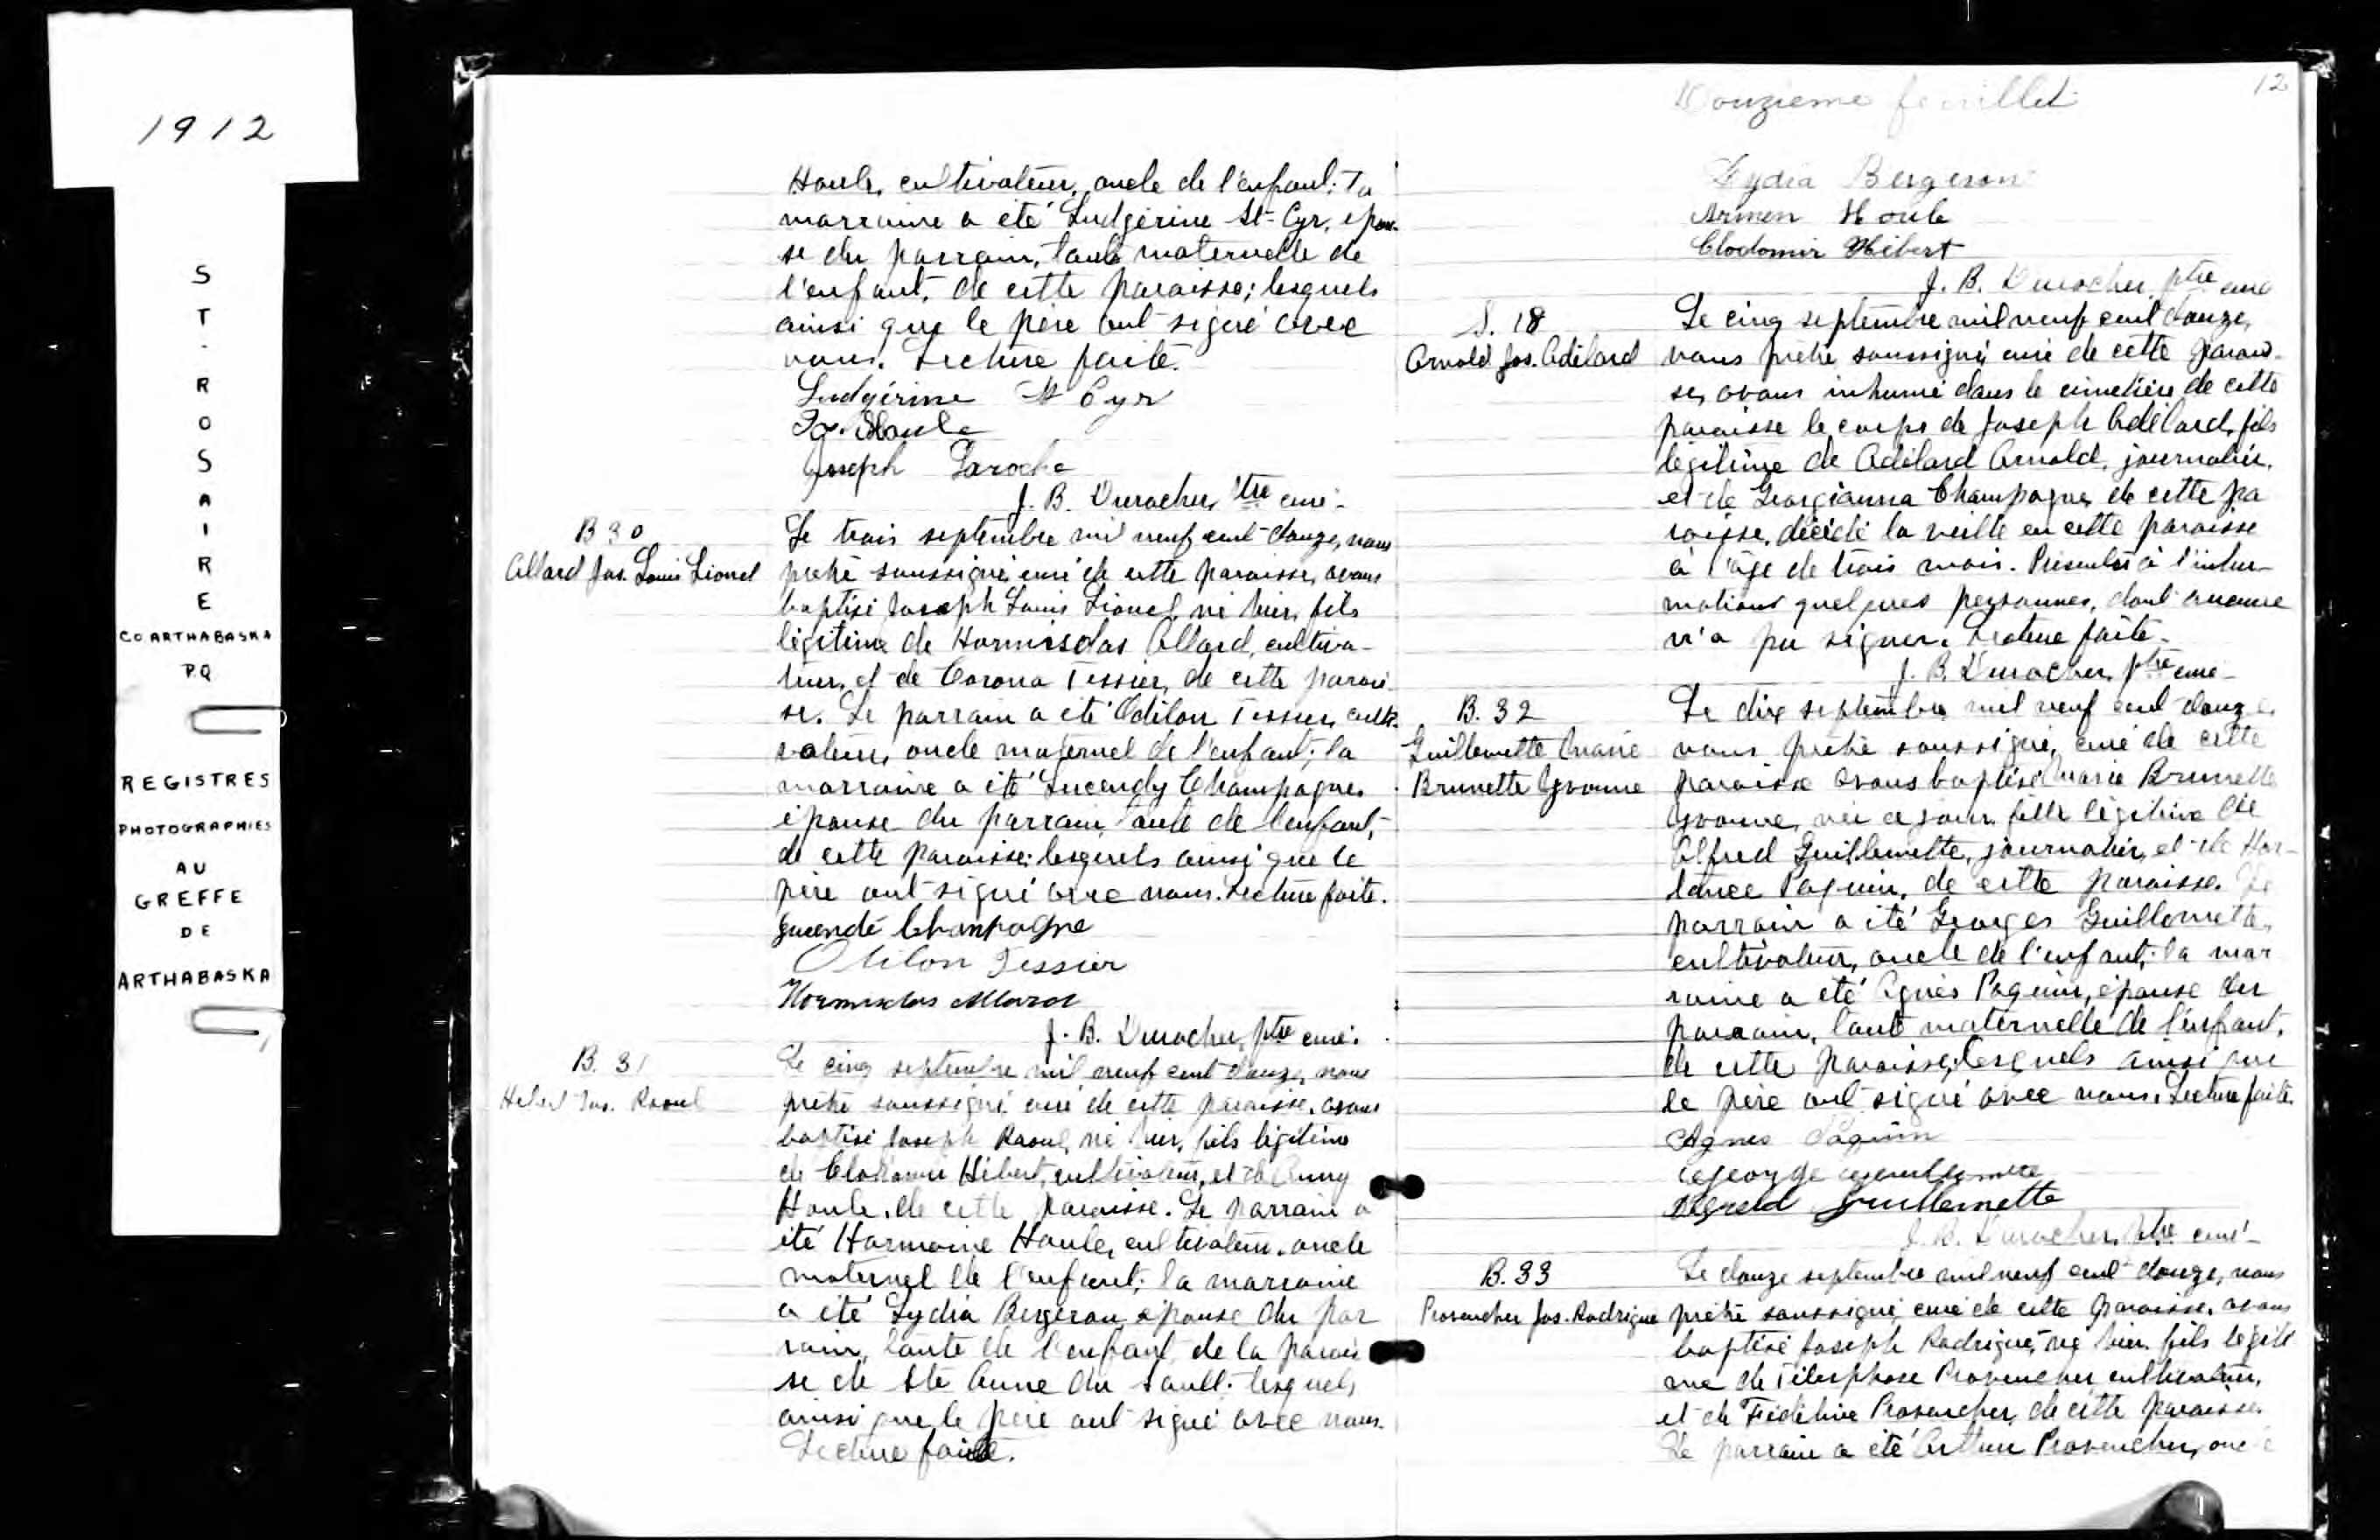 1912
ST-ROSAIRE
CO ARTHABASKA
P.Q
REGISTRES
PHOTOGRAPHIES
AU
GREFFE
DE
ARTHABASKA
Houle, cultivateur, oncle de l'enfant; la
marraine a été Ludgérine St-Cyr, épou-
se du parrain, tante maternelle de
l'enfant, de cette paroisse; lesquels
ainsi que le père ont signé avec
nous. Lecture faite.
Ludgérine St Cyr
Houle
Joseph Laroche
J. B. Durocher, ptre curé-
B 30
Allard Jos. Louis Lionel
Le trois septembre mil neuf cent douze, nous
prêtre soussigné curé de cette paroisse, avons
baptisé Joseph Louis Lionel, né hier, fils
légitime de Hormisdas Allard, cultiva-
teur, et de Corona Tessier, de cette parois-
se. Le parrain a été Odilon Tessier, culti-
vateur, oncle maternel de l'enfant; la
marraine a été Champagne,
épouse du parrain, tante de l'enfant,
de cette paroisse; lesquels ainsi que le
père ont signé avec nous. Lecture faite.
Champagne
Odilon Tessier
Hormisdas Allard
J. B. Durocher, ptre curé.
B. 31
Hebert Jos. Raoul
Le cinq septembre mil neuf cent douze, nous
prêtre soussigné curé de cette paroisse, avons
baptisé Joseph Raoul, né hier, fils légitime
de Clodomir Hébert, cultivateur, et de
Houle, de cette paroisse. Le parrain a
été Houle, cultivateur, oncle
maternel de l'enfant; la marraine
a été Lydia Bergeron, épouse du par
rain, tante de l'enfant, de la parois
se de Ste Anne du Sault; lesquels
ainsi que le père ont signé avec nous.
Lecture faite.
12
Douzième feuillet
Lydia Bergeron
Armen Houle
Clodomir Hébert
J. B. Durocher, ptre curé
S. 18
Arnold Jos. Adélard
Le cinq septembre mil neuf cent douze,
nous prêtre soussigné curé de cette parois-
se, avons inhumé dans le cimetière de cette
paroisse le corps de Joseph Adélard, fils
légitime de Adélard Arnold, journalier,
et de Georgianna Champagne, de cette pa
roisse, décédé la veille en cette paroisse
à l'âge de trois mois. Présents à l'inhu-
mations quelques personnes, dont aucune
n'a pu signer. Lecture faite.
J. B. Durocher, ptre curé-
B. 32
Guillemette Marie
Brunette Yvonne
Le dix septembre mil neuf cent douze,
nous prêtre soussigné, curé de cette
paroisse avons baptisé Marie Brunette
Yvonne, née ce jour, fille légitime de
Alfred Guillemette, journalier, et de Hor-
tance Paquin, de cette paroisse. Le
parrain a été Georges Guillemette,
cultivateur, oncle de l'enfant; la mar
raine a été Agnès Paquin, épouse du
parrain, tante maternelle de l'enfant,
de cette paroisse; lesquels ainsi que
le père ont signé avec nous. Lecture faite.
Agnes Paquin
George
Alfred Guillemette
J. B. Durocher, ptre curé-
B. 33
Provencher Jos. Rodrigue
Le douze septembre mil neuf cent douze, nous
prêtre soussigné, curé de cette paroisse, avons
baptisé Joseph Rodrigue, né hier, fils légiti
me de Télesphore Provencher, cultivateur,
et de Fideline Provencher, de cette paroisse.
Le parrain a été Arthur Provencher, oncle